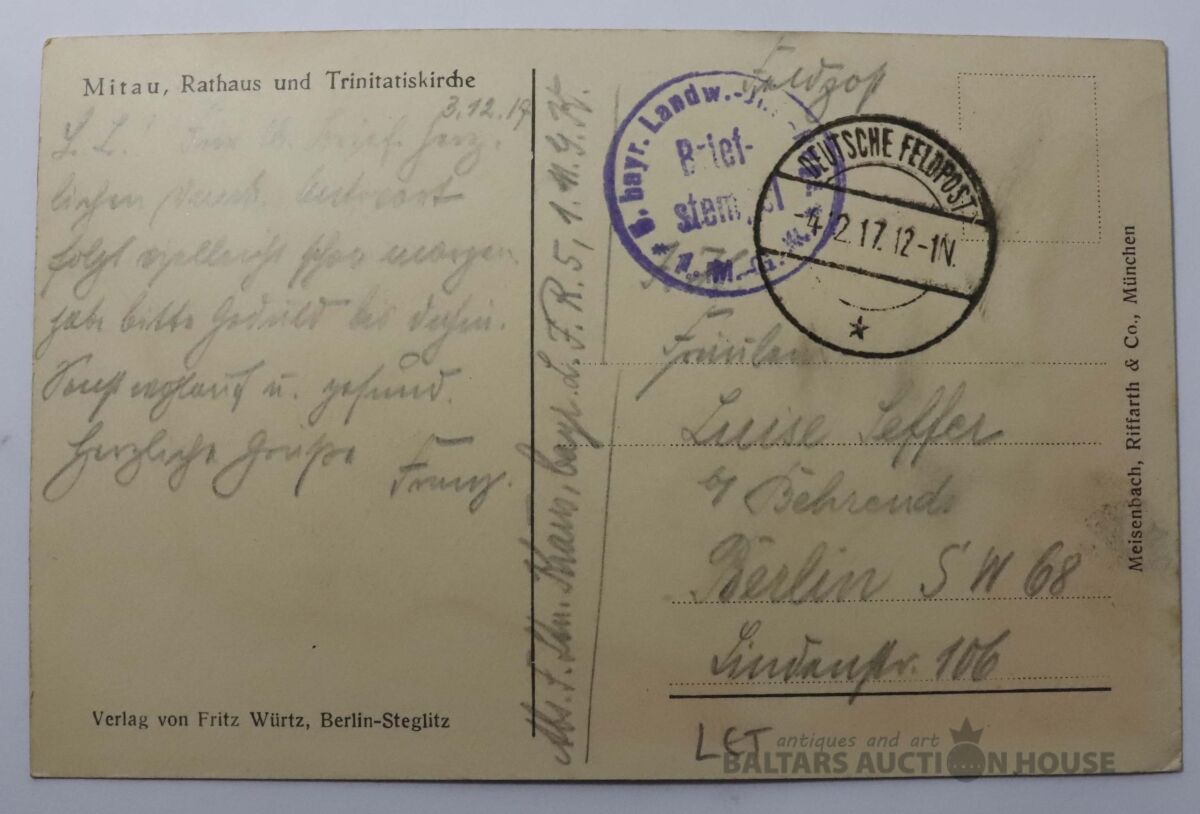 Mitau, Rathaus und Trinitatiskirche
3.12.17
L. L.! Brief. Herz-
lichen Dank. Antwort
folgt vielleicht schon morgen
habe bitte Geduld bis dahin.
Sonst wohlauf u. gesund.
Herzliche Grüße
Franz.
Verlag von Fritz Würtz, Berlin-Steglitz
Abs. bayr. L. F. R. 5, 1. M. G. K.
Feldpost
bayr. Landw.-
Brief-
stempel
DEUTSCHE FELDPOST
-4.12.17.12-1N.
Fräulein
Luise Seffer
b/ Behrends
Berlin SW 68
Lindenstr. 106
Meisenbach, Riffarth & Co., München
LET
antiques and art
BALTARS AUCTION HOUSE